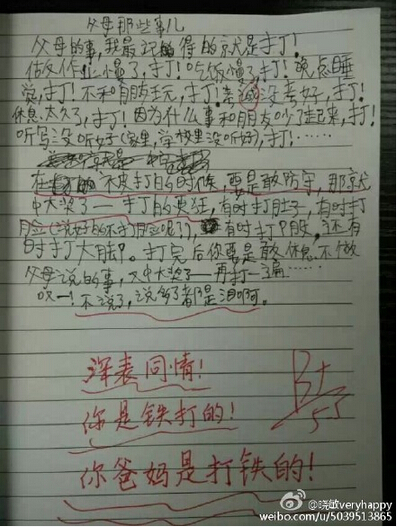 父母那些事儿
父母的事,我最记的得的就是打!
做作业慢了,打!吃饭慢了,打!晚点睡
觉,打!不和朋友玩,打!考试没考好,打!
休息太久了,打!因为什么事和朋友吵了起来,打!
听写没听好(家里,学校里没听好),打!……
在不被打的时候,要是敢防守,那就
中大奖了——打的更狂,有时打肚子,有时打
脸(说好的不打脸呢?),有时打屁股,还有
时打大腿。打完后你要是敢休息,不做
父母说的事,又中大奖了——再打一遍……
哎——!不说了,说多了都是泪啊。
深表同情!
你是铁打的!
你爸妈是打铁的!
B+
@晓敏veryhappy
weibo.com/u/5039513865